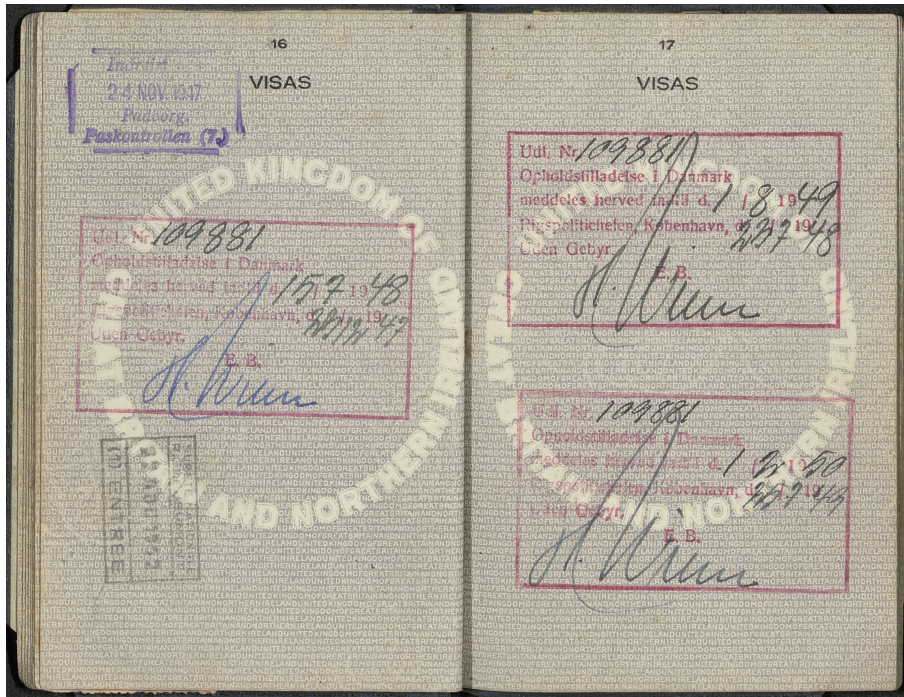 16
VISAS
Indrejst
24 NOV 1947
Padborg.
Paskontrollen (7.)
UNITED KINGDOM OF GREAT BRITAIN AND NORTHERN IRELAND
Udl. Nr. 109881
Opholdstilladelse i Danmark
meddeles herved indtil d. 15/7 1948
Rigspolitichefen, København, d. 1947
Uden Gebyr.
E. B.
ENTREE
17
VISAS
UNITED KINGDOM OF GREAT BRITAIN AND NORTHERN IRELAND
Udl. Nr. 109881
Opholdstilladelse i Danmark
meddeles herved indtil d. 1/8 1949
Rigspolitichefen, København, d. 22/7 1948
Uden Gebyr.
E. B.
Udl. Nr. 109881
Opholdstilladelse i Danmark
meddeles herved indtil d. 1 1950
Rigspolitichefen, København, d. 1949
Uden Gebyr.
E. B.